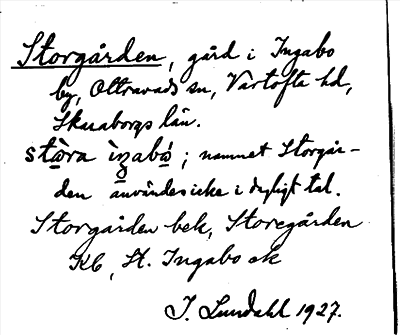 Storgården, gård i Ingabo
by, Ottravads sn, Vartofta hd,
Skaraborgs län.
stòra ìŋabó; namnet Storgår-
den användes icke i dagligt tal.
Storgården bek, Storegården
Kb, St. Ingabo ek
J. Lundahl 1927.